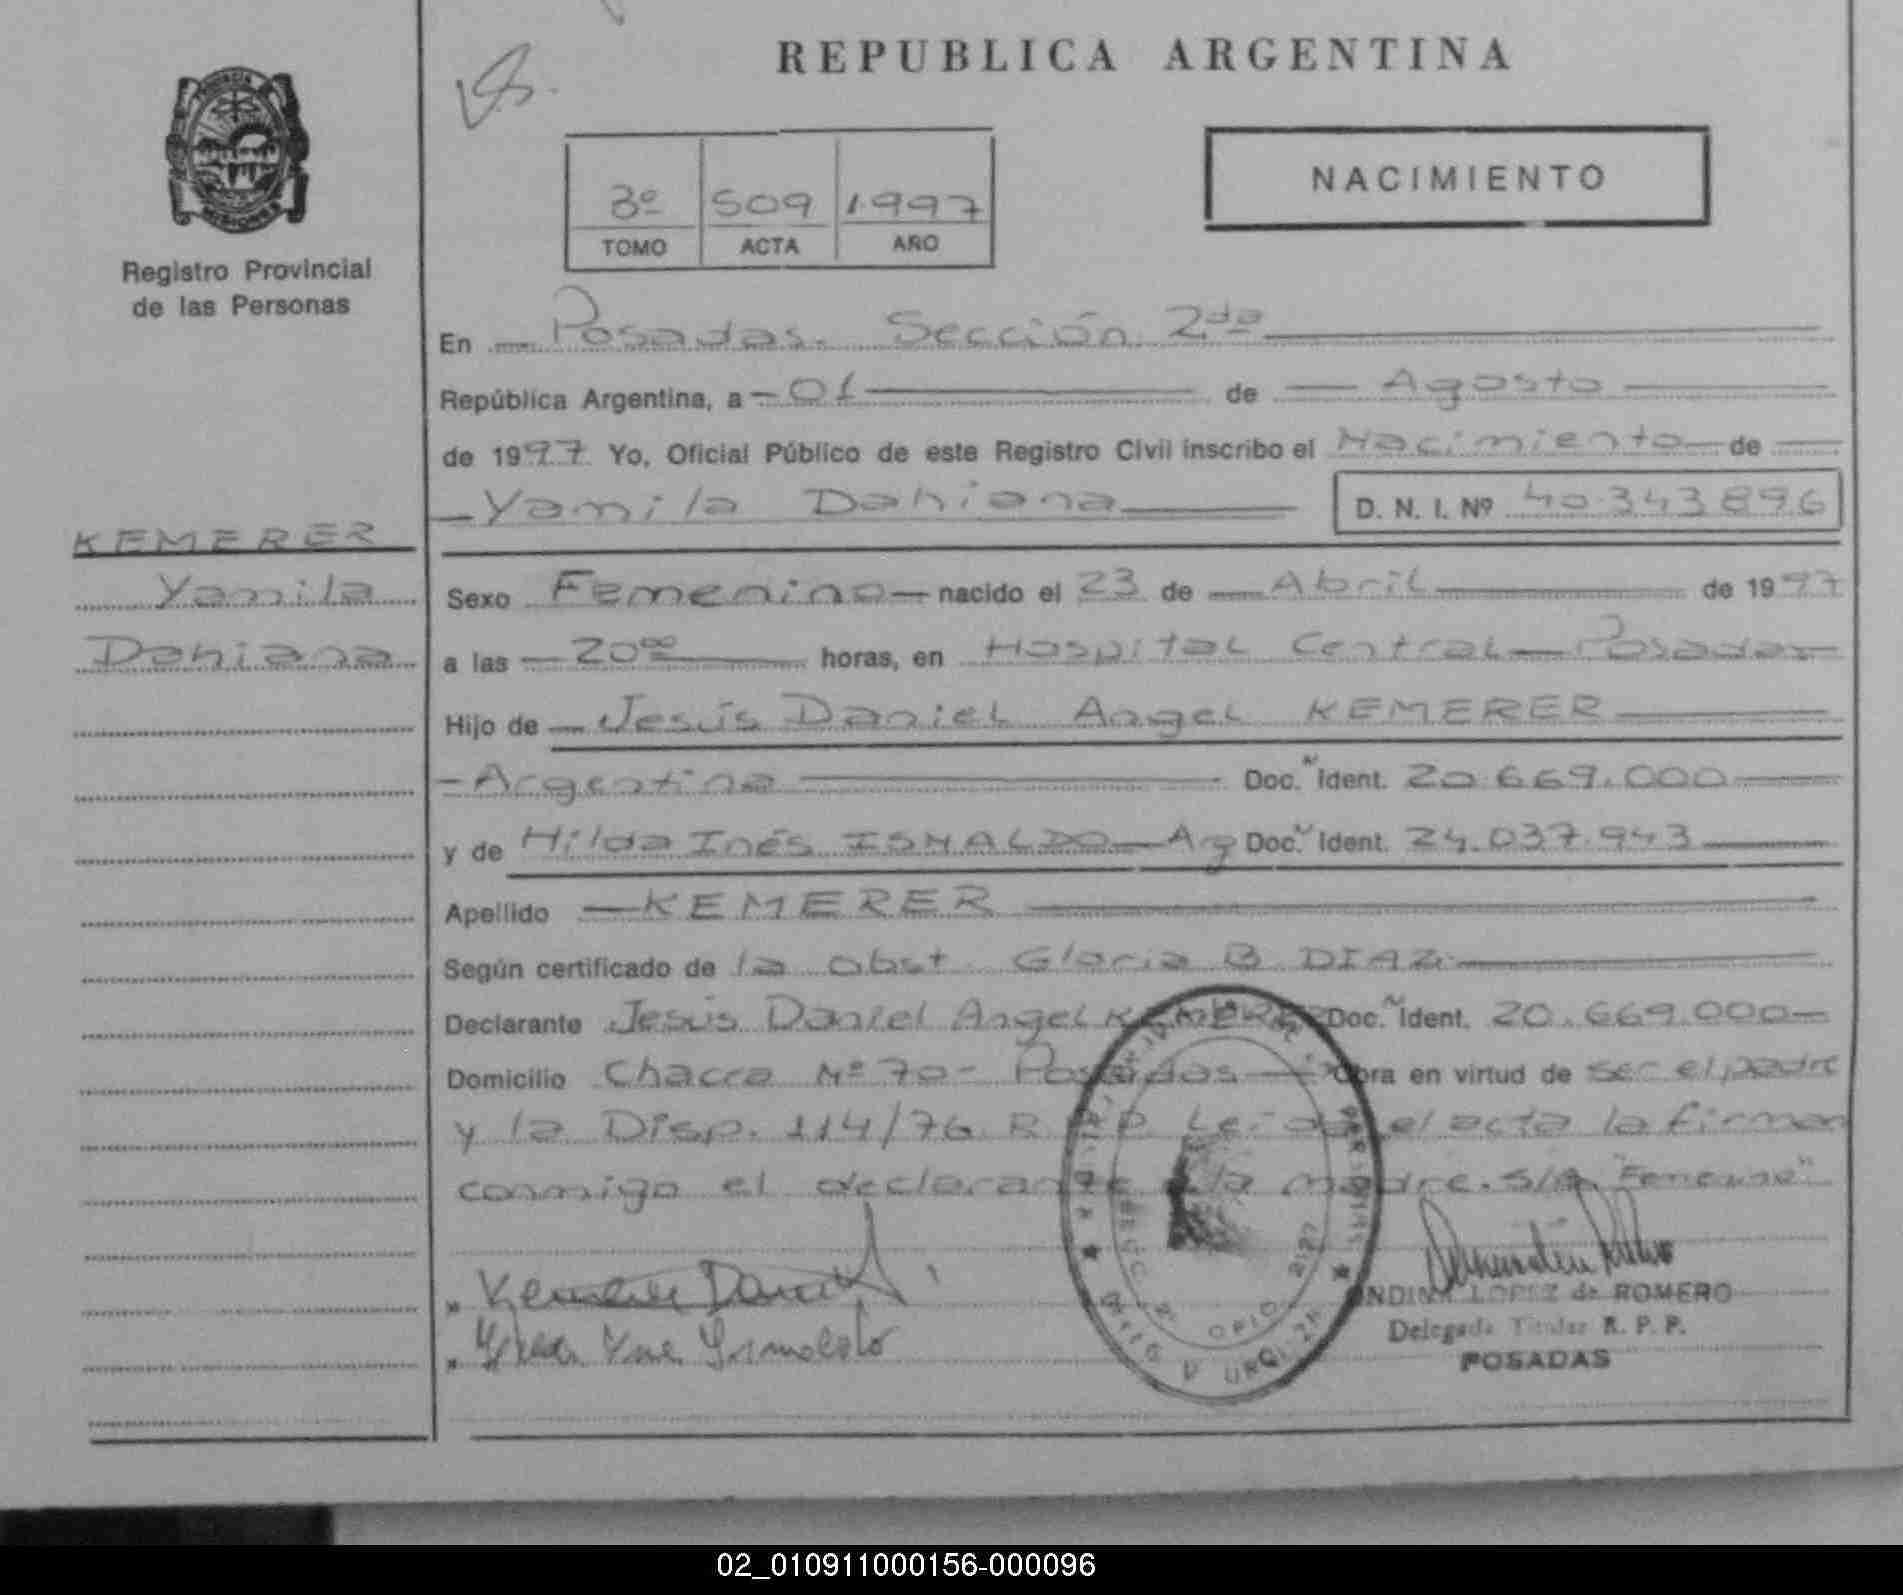 REPUBLICA ARGENTINA
NACIMIENTO
3º 509 1997
TOMO ACTA AÑO
Registro Provincial
de las Personas
En Posadas. Sección 2da
República Argentina, a 01 de Agosto
de 1997 Yo, Oficial Público de este Registro Civil inscribo el Nacimiento de
Yamila Dahiana D. N. I. Nº 40.343.896
KEMERER
Yamila
Dahiana
Sexo Femenino nacido el 23 de Abril de 1997
a las 20⁰⁰ horas, en Hospital Central Posadas
Hijo de Jesús Daniel Angel KEMERER
Argentina Doc. Ident. 20.669.000
y de Hilda Inés Arg Doc. Ident. 24.037.943
Apellido KEMERER
Según certificado de la obst. Gloria B DIAZ
Declarante Jesús Daniel Angel KEMERER Doc. Ident. 20.669.000
Domicilio Chacra Nº 70 - Posadas Obra en virtud de ser el padre
y la Disp. 114/76 R.P.P. Leída el acta la firman
conmigo el declarante y la madre. S/R "Femenino"
LOPEZ de ROMERO
Delegada Titular R. P. P.
POSADAS
02_010911000156-000096